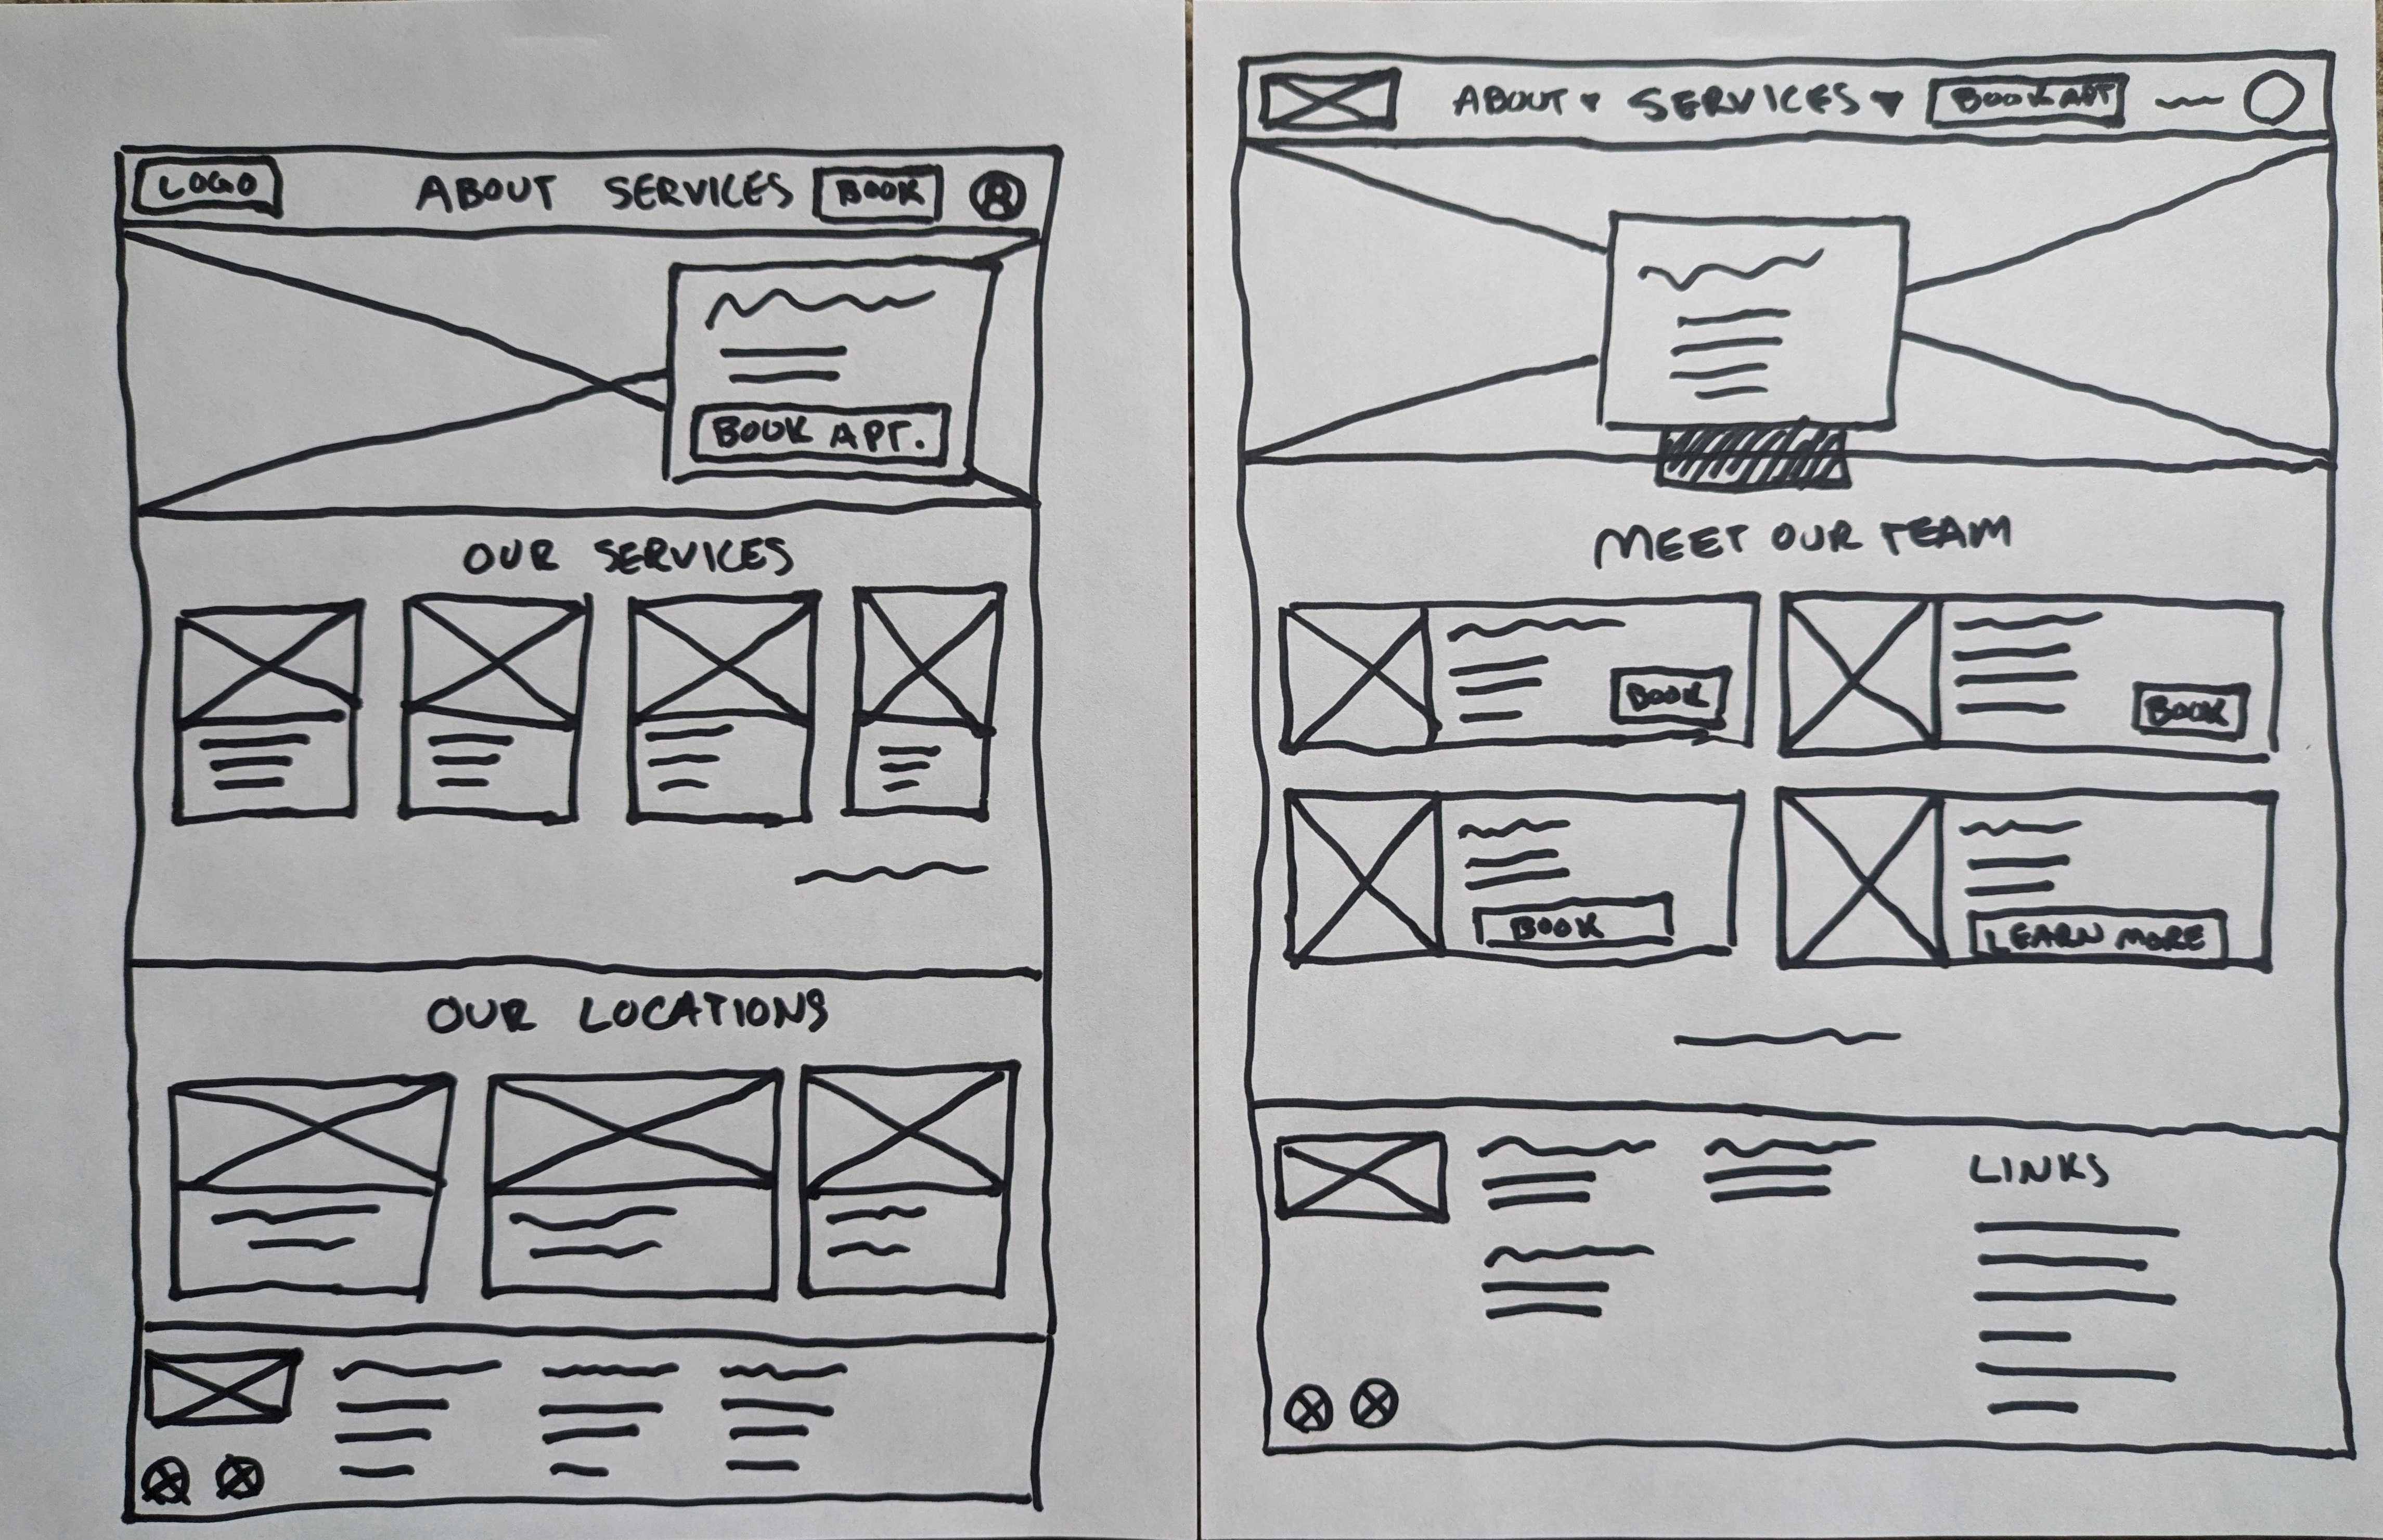 LOGO ABOUT SERVICES BOOK
BOOK APT.
OUR SERVICES
OUR LOCATIONS
ABOUT SERVICES BOOK APT
MEET OUR TEAM
BOOK BOOK
BOOK LEARN MORE
LINKS